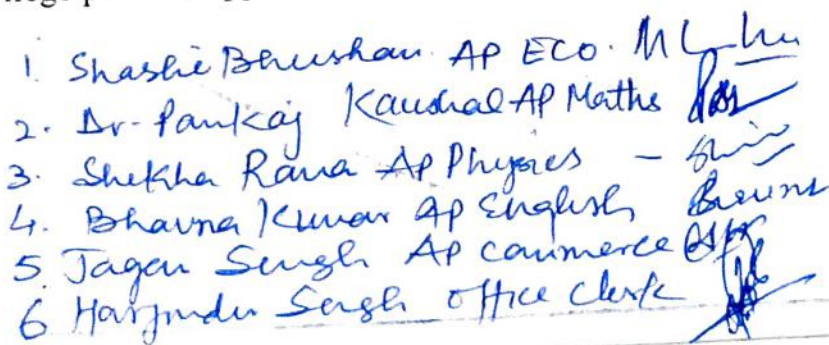 1. Shashie Bhushan AP ECO.
2. Dr. Pankaj Kaushal AP Maths
3. Shekha Rana AP Physics -
4. Bhavna Kumar AP English
5 Jagan Singh AP commerce
6 Harjinder Singh office Clerk